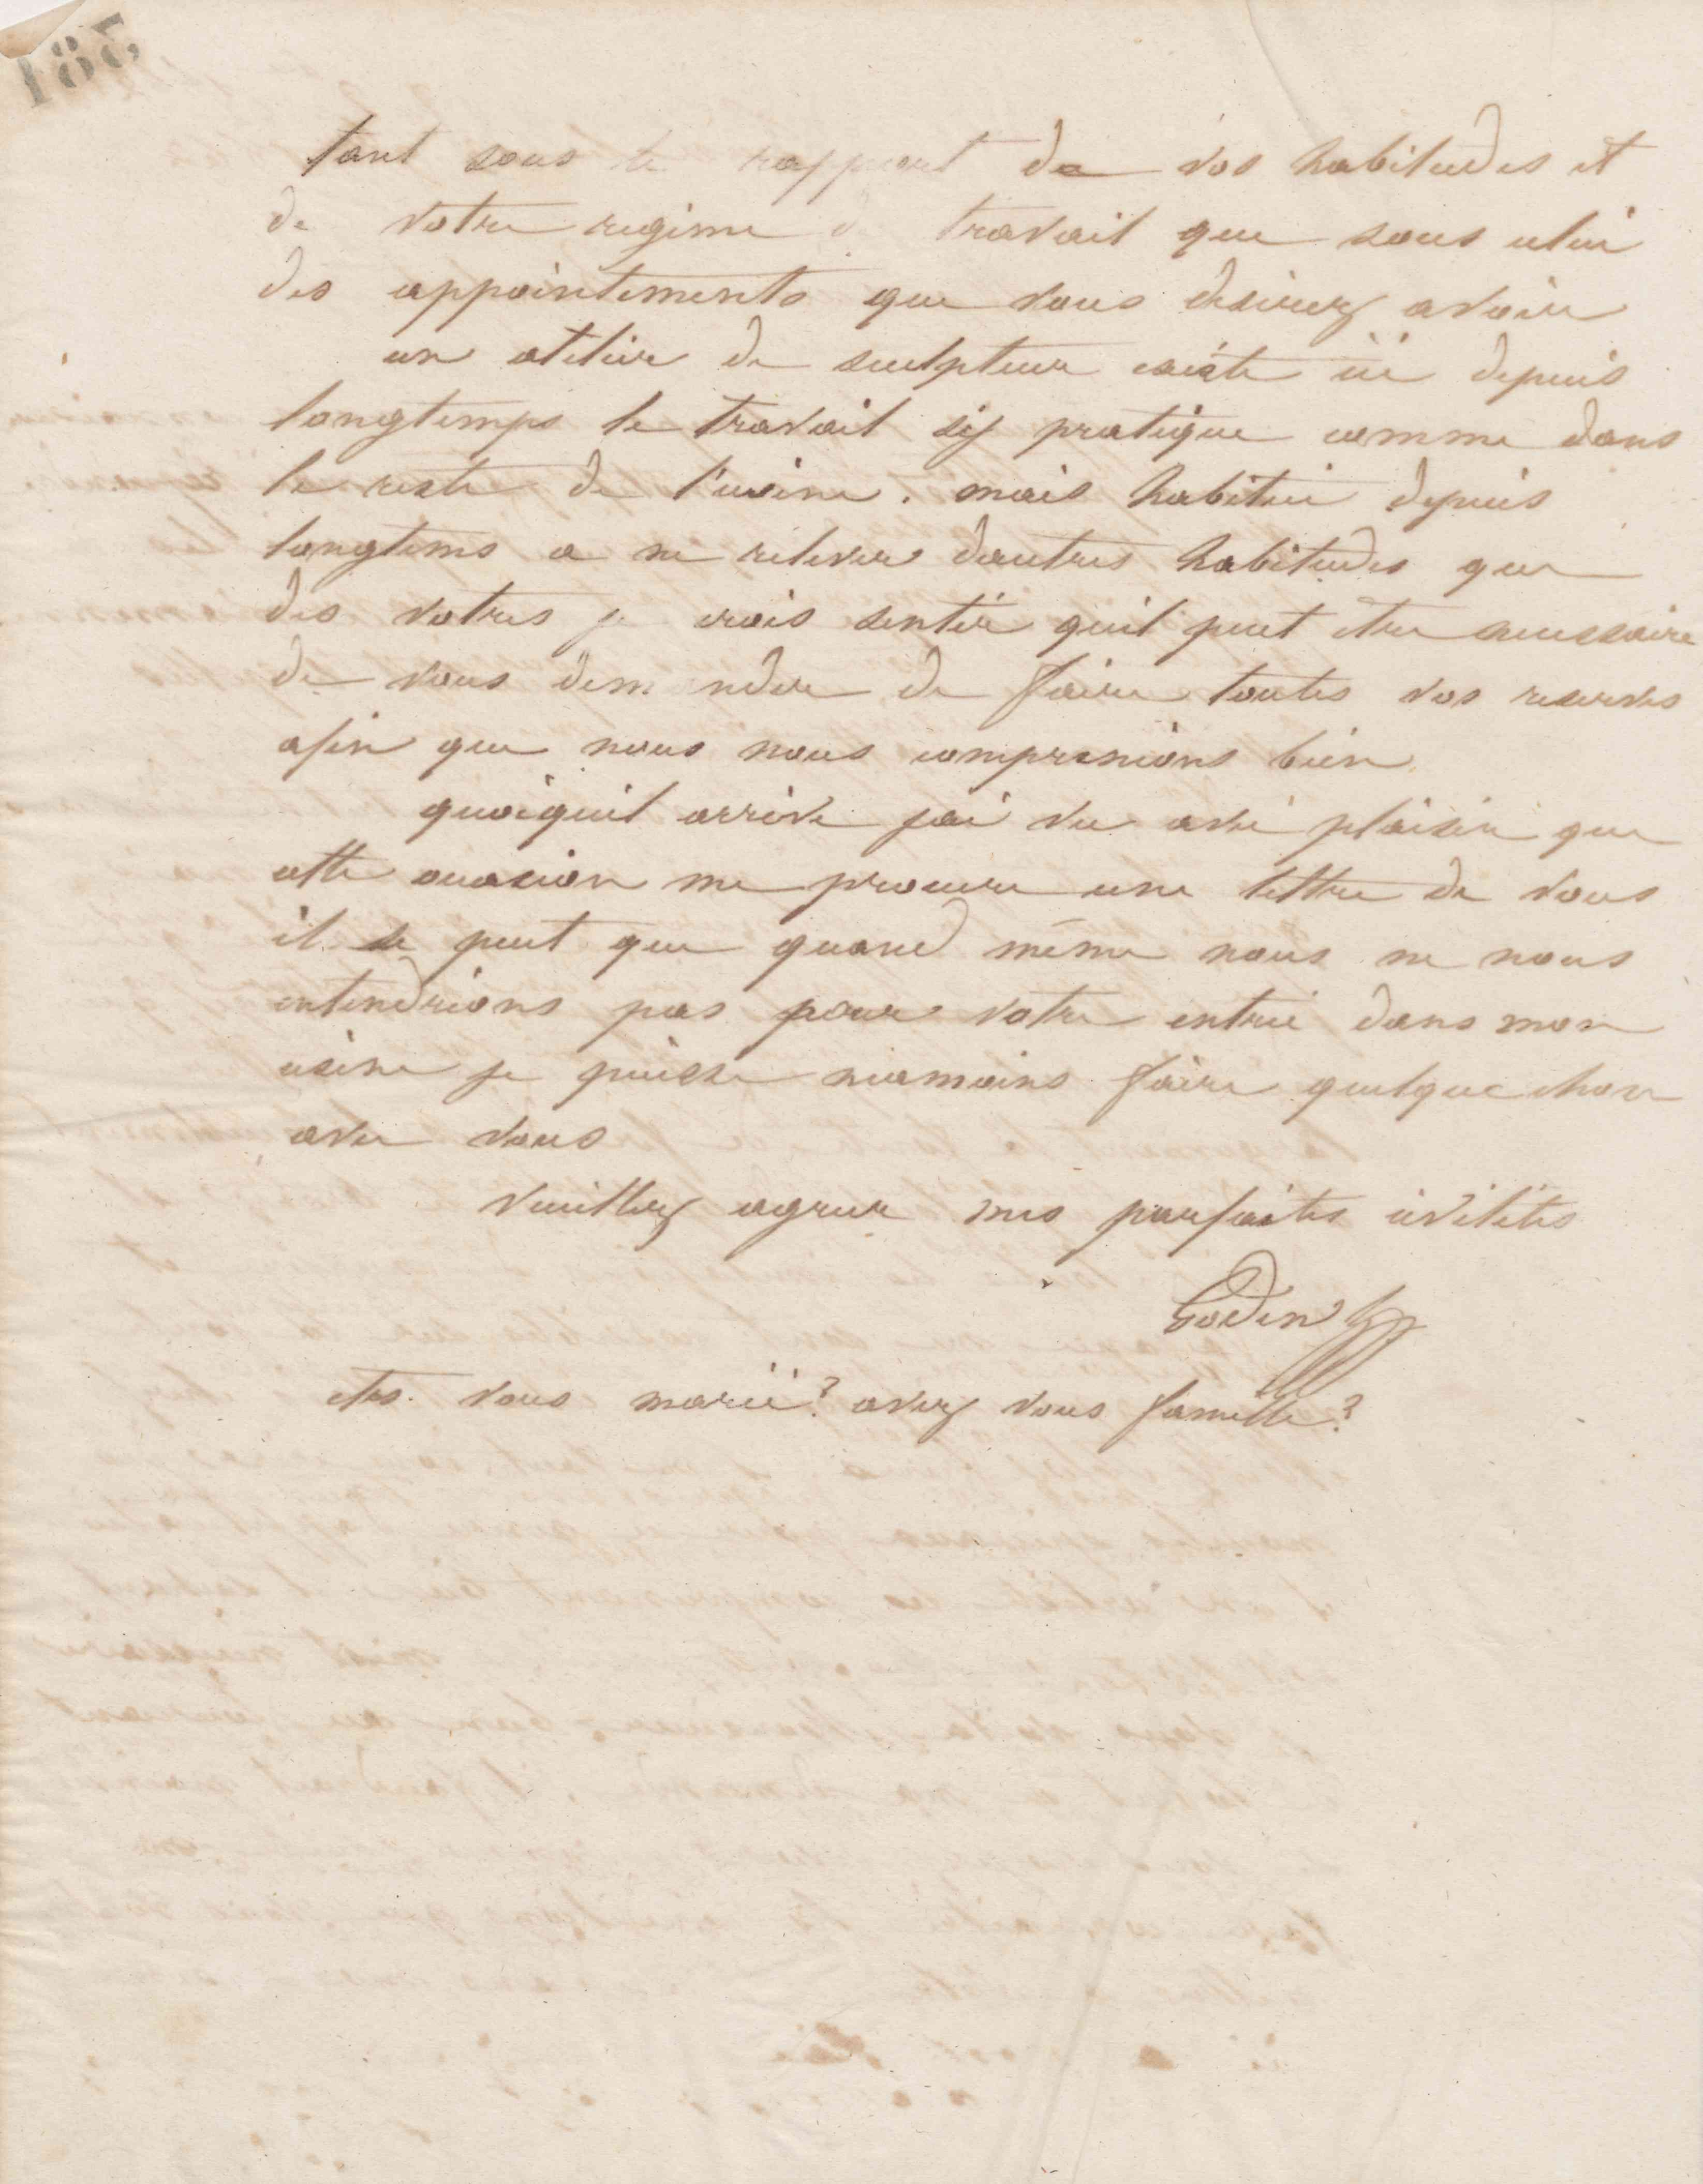 185
tant sous le rapport de vos habitudes et
de votre regime d travail que sous celui
des appointements que vous desirez avoir
un atelier de sculpteur existe ici depuis
longtemps le travail sy pratique comme dans
le reste de l'usine. mais habitué depuis
longtems a ne relever dautres habitudes que
des votres je crois sentir quil peut etre necessaire
de vous demander de faire toutes vos reserves
afin que nous nous comprenions bien
quoiquil arrive jai vu avec plaisir que
cette occasion me procure une lettre de vous
il se peut que quand même nous ne nous
entendrions pas pour votre entrée dans mon
usine je puisse neamoins faire quelque chose
avec vous
Veuillez agreer mes parfaites civilités
Godin
etes. vous marié? avez vous famille?